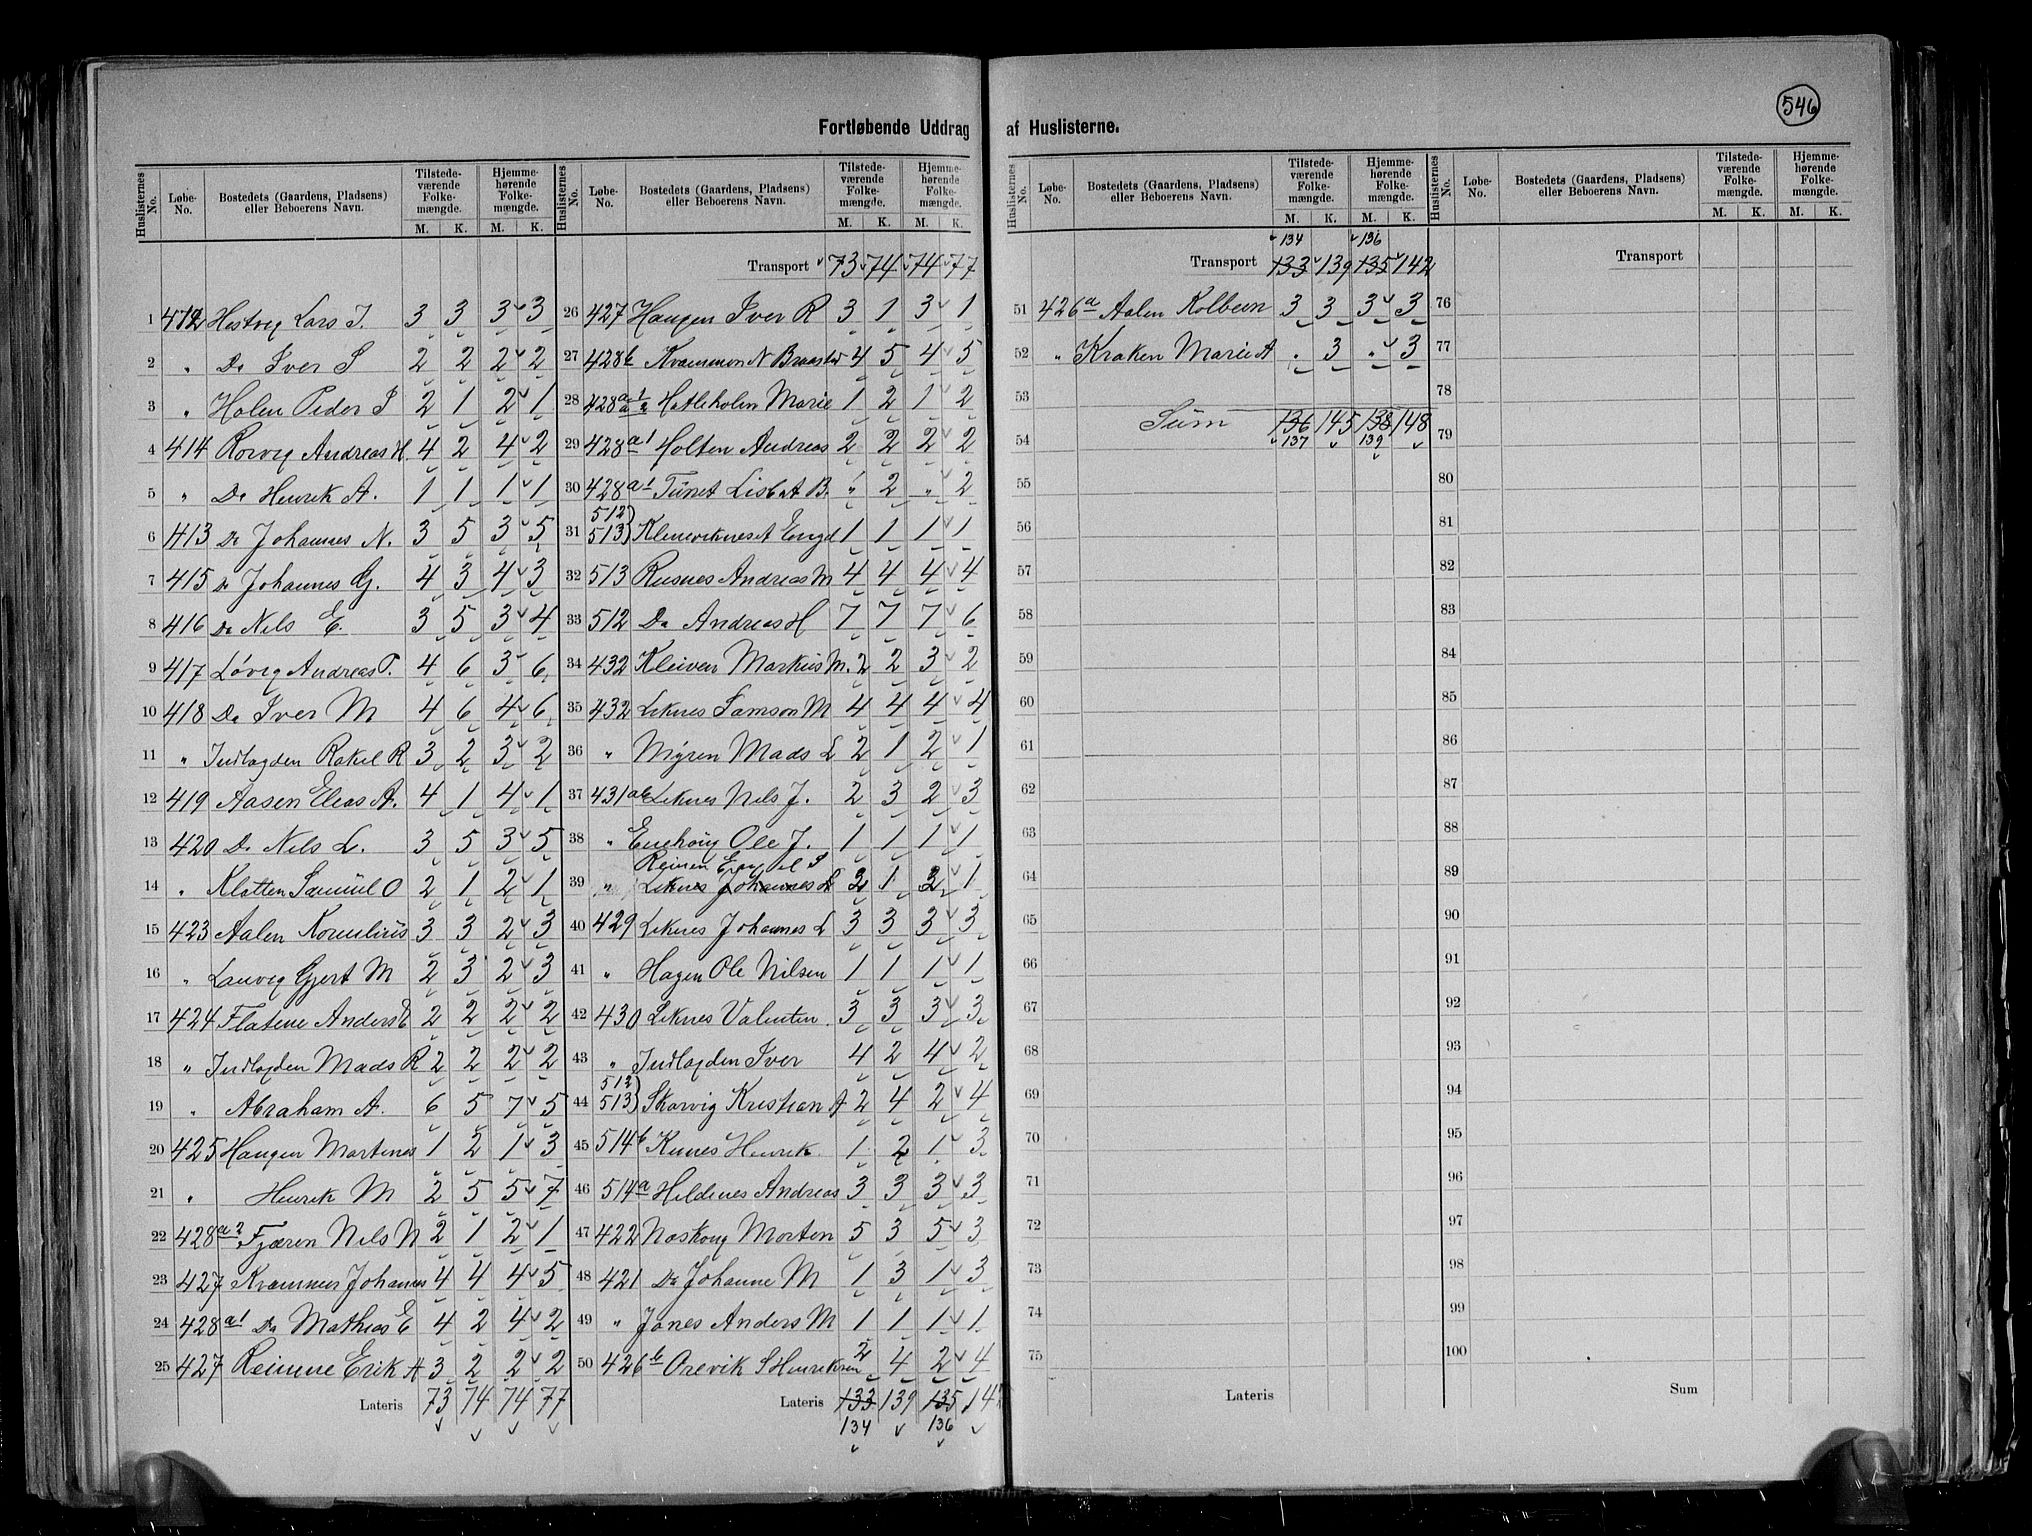 546
Fortløbende Uddrag af Huslisterne.
Huslisternes No. Løbe-No. Bostedets (Gaardens, Pladsens) eller Beboerens Navn. Tilstedeværende Folkemængde. M. K. Hjemmehørende Folkemængde. M. K.
1 412 Hestvig Lars J. 3 3 3 3
2 " Do Iver S 2 2 2 2
3 " Holen Peder J 2 1 2 1
4 414 Rørvig Andreas H. 4 2 4 2
5 " Do Henrik A. 1 1 1 1
6 413 Do Johannes N. 3 5 3 5
7 415 Do Johannes G. 4 3 4 3
8 416 Do Nils E. 3 5 3 4
9 417 Løvig Andreas P. 4 6 3 6
10 418 Do Iver M 4 6 4 6
11 " Indlagden Rakel R 3 2 3 2
12 419 Aasen Elias A. 4 1 4 1
13 420 Do Nils L. 3 5 3 5
14 " Klatten Samuel O 2 1 2 1
15 423 Aalen Kornelius 3 3 2 3
16 " Lauvig Gjert M 2 3 2 3
17 424 Flatene Anders E 2 2 2 2
18 " Indlagden Mads R 2 2 2 2
19 " Abraham A. 6 5 7 5
20 425 Haugen Martines 1 2 1 3
21 " Henrik M 2 5 5 7
22 428 a2 Fjæren Nils N 2 1 2 1
23 427 Krammer Johannes 4 4 4 5
24 428 a1 Do Mathias E 4 2 4 2
25 427 Reinme Erik A 3 2 2 2
Lateris 73 74 74 77
Huslisternes No. Løbe-No. Bostedets (Gaardens, Pladsens) eller Beboerens Navn. Tilstedeværende Folkemængde. M. K. Hjemmehørende Folkemængde. M. K.
Transport 73 74 74 77
26 427 Haugen Iver R 3 1 3 1
27 428 b Krammen N Braaster 4 5 4 5
28 428 Hatleholen Marie 1 2 1 2
29 428 a1 Holten Andreas 2 2 2 2
30 428 a1 Tunet Lisbet B. " 2 " 2
31 512 513 Klenevikneset Engd 1 1 1 1
32 513 Rusnes Andreas M 4 4 4 4
33 512 Do Andreas H 7 7 7 6
34 432 Kleiven Markus M. 2 2 3 2
35 432 Leknes Samson M 4 4 4 4
36 " Myren Mads L 2 1 2 1
37 431 ab Leknes Nils J. 2 3 2 3
38 " Enehøug Ole J. 1 1 1 1
Reinen Engel S
39 " Leknes Johannes L 2 1 2 1
40 429 Leknes Johannes L 3 3 3 3
41 " Hagen Ole Nilsen 1 1 1 1
42 430 Leknes Valentin 3 3 3 3
43 " Indlagden Iver 4 2 4 2
44 512 513 Skorvig Kristian A 2 4 2 4
45 514 b Runes Henrik 1 2 1 3
46 514 a Heldenes Andreas 3 3 3 3
47 422 Naskoug Morten 5 3 5 3
48 421 Do Johanne M 1 3 1 3
49 " Janes Anders M 1 1 1 1
50 426 b Orevik S Henriksen 2 4 2 4
Lateris 133 139 135 142
134 136
Huslisternes No. Løbe-No. Bostedets (Gaardens, Pladsens) eller Beboerens Navn. Tilstedeværende Folkemængde. M. K. Hjemmehørende Folkemængde. M. K.
134 136
Transport 133 139 135 142
51 426 a Aalen Kolbein 3 3 3 3
52 " Kraken Marie A " 3 " 3
53
Sum 136 145 138 148
54 137 139
55
56
57
58
59
60
61
62
63
64
65
66
67
68
69
70
71
72
73
74
75
Lateris
Huslisternes No. Løbe-No. Bostedets (Gaardens, Pladsens) eller Beboerens Navn. Tilstedeværende Folkemængde. M. K. Hjemmehørende Folkemængde. M. K.
Transport
76
77
78
79
80
81
82
83
84
85
86
87
88
89
90
91
92
93
94
95
96
97
98
99
100
Sum